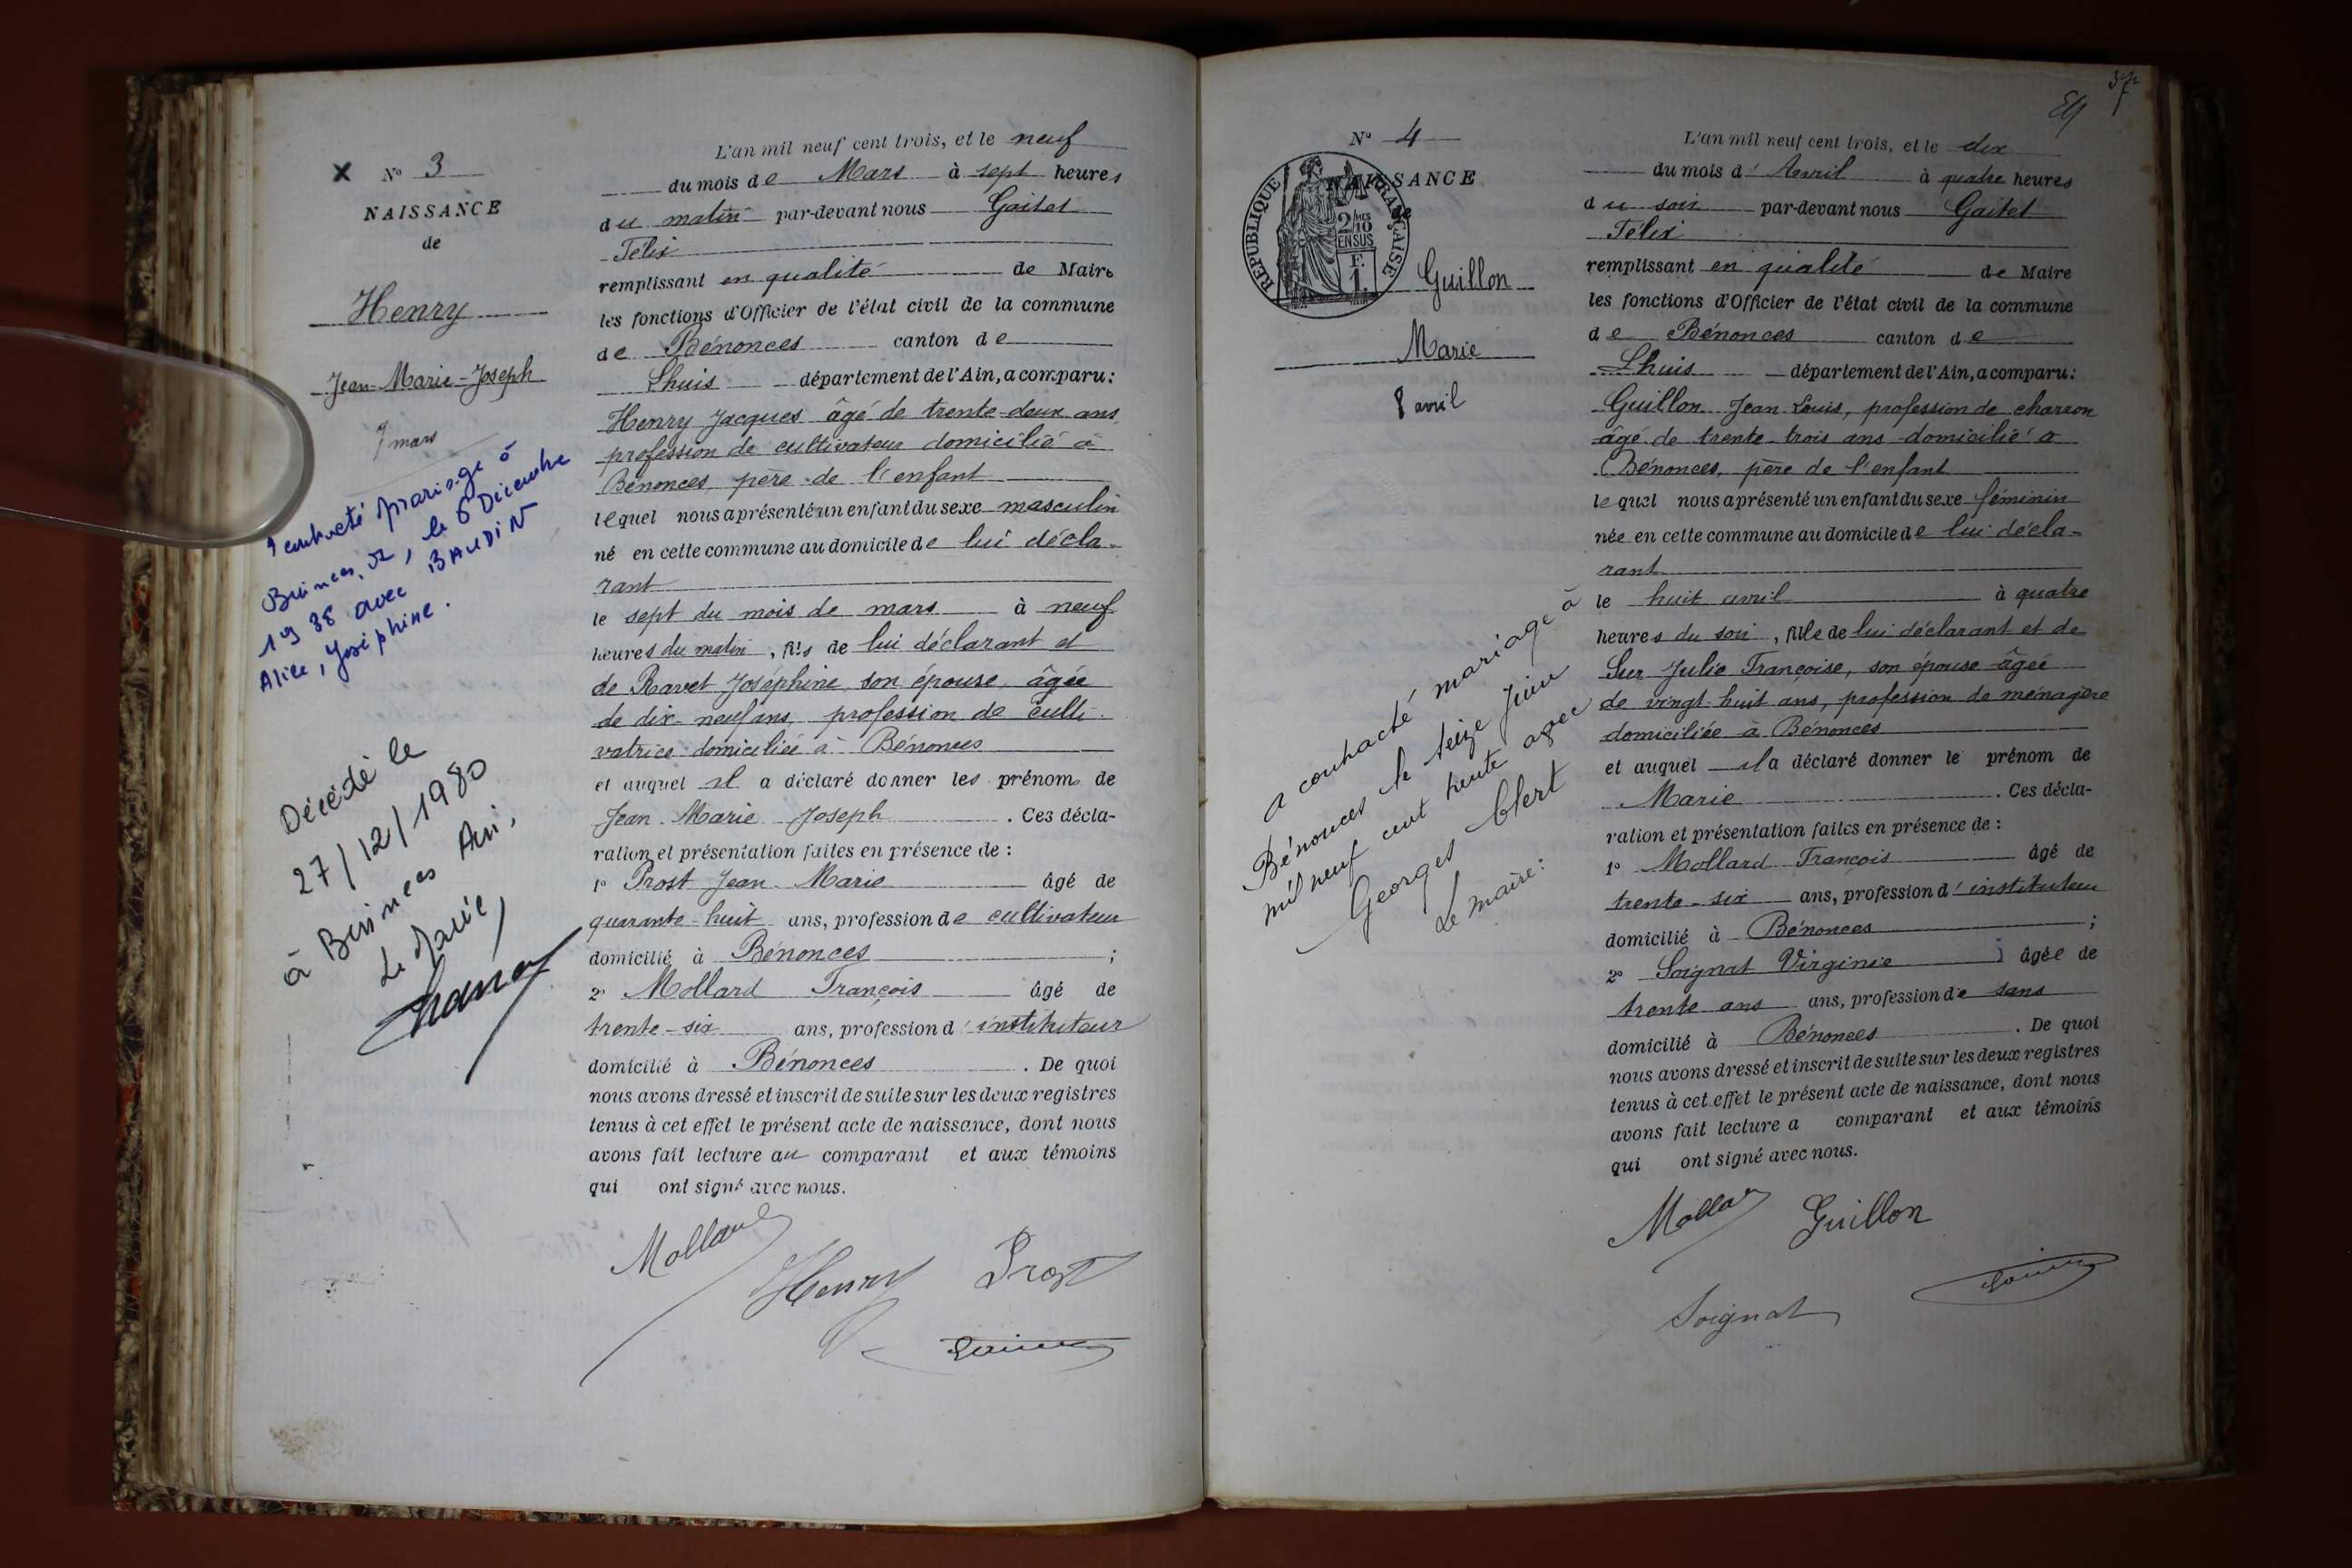 X N° 3
NAISSANCE
de
Henry
Jean-Marie-Joseph
7 mars
contracté mariage à
le 6 Décembre
1938 avec BAUDIN
Alice, Joséphine.
Décédé le
27/12/1980
à Ain,
Le Maire,
L'an mil neuf cent trois, et le neuf
du mois de Mars à sept heures
du matin par-devant nous Gaitet
Félix
remplissant en qualité de Maire
les fonctions d'Officier de l'état civil de la commune
de Bénonces canton de
Lhuis département de l'Ain, a comparu:
Henry Jacques âgé de trente-deux ans,
profession de cultivateur domicilié à
Bénonces, père de l'enfant
lequel nous a présenté un enfant du sexe masculin
né en cette commune au domicile de lui décla-
rant
le sept du mois de mars à neuf
heures du matin, fils de lui déclarant et
de Ravet Joséphine, son épouse, âgée
de dix-neuf ans, profession de culti-
vatrice domiciliée à Bénonces
et auquel il a déclaré donner les prénoms de
Jean Marie Joseph. Ces décla-
ration et présentation faites en présence de :
1° Prost Jean Marie âgé de
quarante-huit ans, profession de cultivateur
domicilié à Bénonces ;
2° Mollard François âgé de
trente-six ans, profession d'instituteur
domicilié à Bénonces. De quoi
nous avons dressé et inscrit de suite sur les deux registres
tenus à cet effet le présent acte de naissance, dont nous
avons fait lecture au comparant et aux témoins
qui ont signé avec nous.
Mollard
Henry
Prost
N° 4
NAISSANCE
de
REPUBLIQUE FRANÇAISE
2/10 MES
EN SUS
F.
1.
Guillon
Marie
8 avril
a contracté mariage à
Bénonces le seize Juin
mil neuf cent trente avec
Georges Clert
Le maire:
L'an mil neuf cent trois, et le dix
du mois d'Avril à quatre heures
du soir par-devant nous Gaitet
Félix
remplissant en qualité de Maire
les fonctions d'Officier de l'état civil de la commune
de Bénonces canton de
Lhuis département de l'Ain, a comparu:
Guillon Jean Louis, profession de charron
âgé de trente-trois ans domicilié à
Bénonces, père de l'enfant
lequel nous a présenté un enfant du sexe féminin
née en cette commune au domicile de lui décla-
rant
le huit avril à quatre
heures du soir, fille de lui déclarant et de
Sur Julie Françoise, son épouse âgée
de vingt-huit ans, profession de ménagère
domiciliée à Bénonces
et auquel il a déclaré donner le prénom de
Marie. Ces décla-
ration et présentation faites en présence de :
1° Mollard François âgé de
trente-six ans, profession d'instituteur
domicilié à Bénonces ;
2° Soignat Virginie âgée de
trente ans ans, profession de sans
domicilié à Bénonces. De quoi
nous avons dressé et inscrit de suite sur les deux registres
tenus à cet effet le présent acte de naissance, dont nous
avons fait lecture a comparant et aux témoins
qui ont signé avec nous.
Mollar
Guillon
Soignat